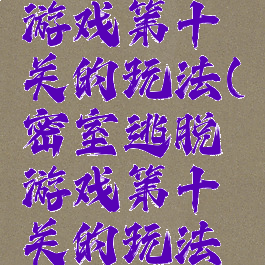 游戏第十
关的玩法(
密室逃脱
游戏第十
关的玩法